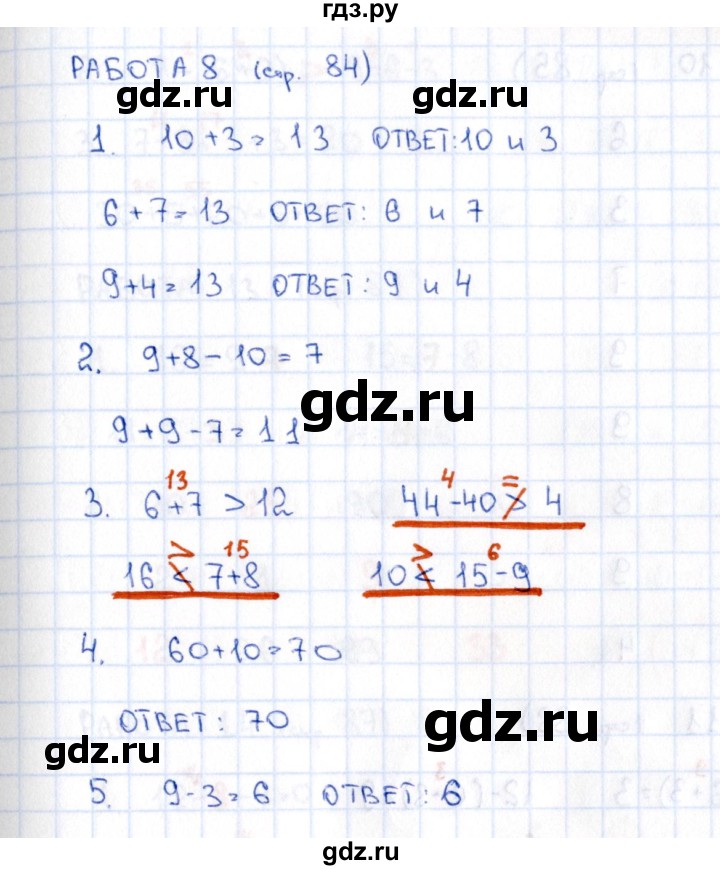 гдз.ру
РАБОТА 8 (стр. 84)
gdz.ru gdz.ru
1. 10+3=13 ОТВЕТ: 10 и 3
6+7=13 ОТВЕТ: 6 и 7
9+4=13 ОТВЕТ: 9 и 4
2. 9+8-10=7
gdz.ru
9+9-7=11
13 4 =
3. 6+7 > 12 44-40 > 4
> 15 > 6
16 < 7+8 10 < 15-9
4. 60+10=70
ОТВЕТ: 70
gdz.ru
gdz.ru
5. 9-3=6 ОТВЕТ: 6
gdz.ru